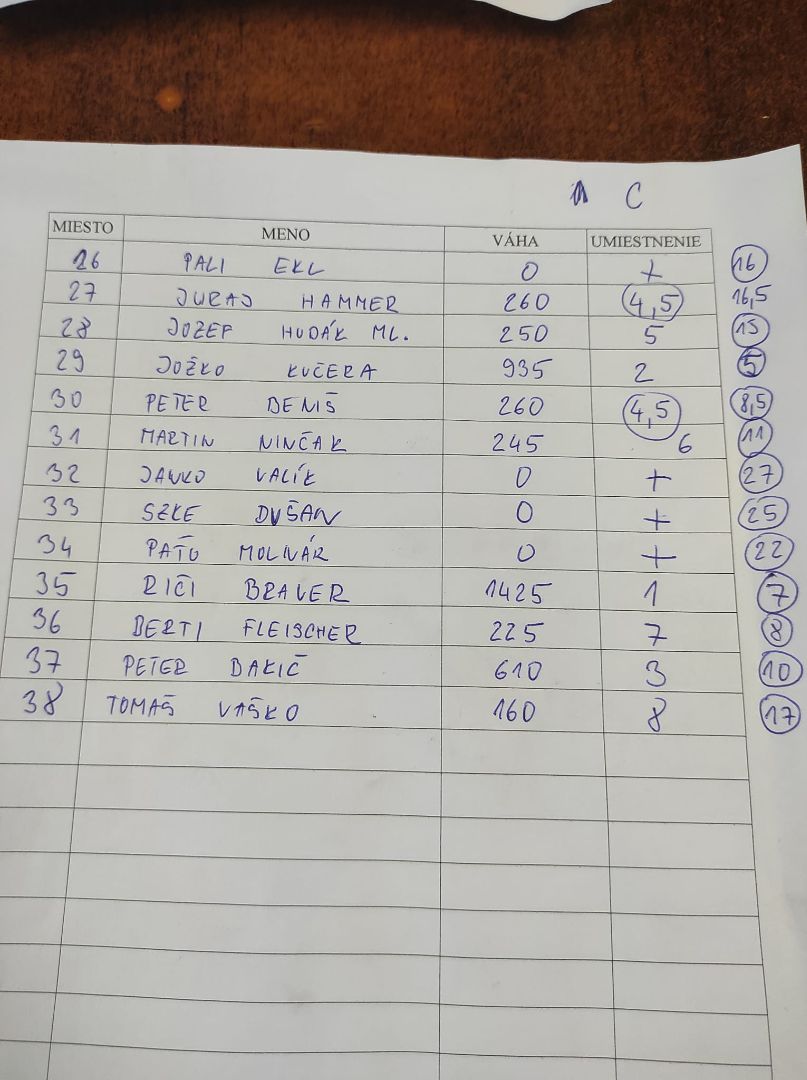 C
MIESTO MENO VÁHA UMIESTNENIE
26 PALI EKL 0 + 16
27 JURAJ HAMMER 260 4,5 16,5
28 JOZEF HUDÁK ML. 250 5 15
29 JOŽKO KUČERA 935 2 5
30 PETER BENIŠ 260 4,5 8,5
31 MARTIN NINČAK 245 6 11
32 JANKO VALÍK 0 + 27
33 SZKE DUŠAN 0 + 25
34 PAŤO MOLNÁR 0 + 22
35 RIČI BRAUER 1425 1 7
36 BERTI FLEISCHER 225 7 8
37 PETER BAKIČ 610 3 10
38 TOMAŠ VAŠKO 160 8 17